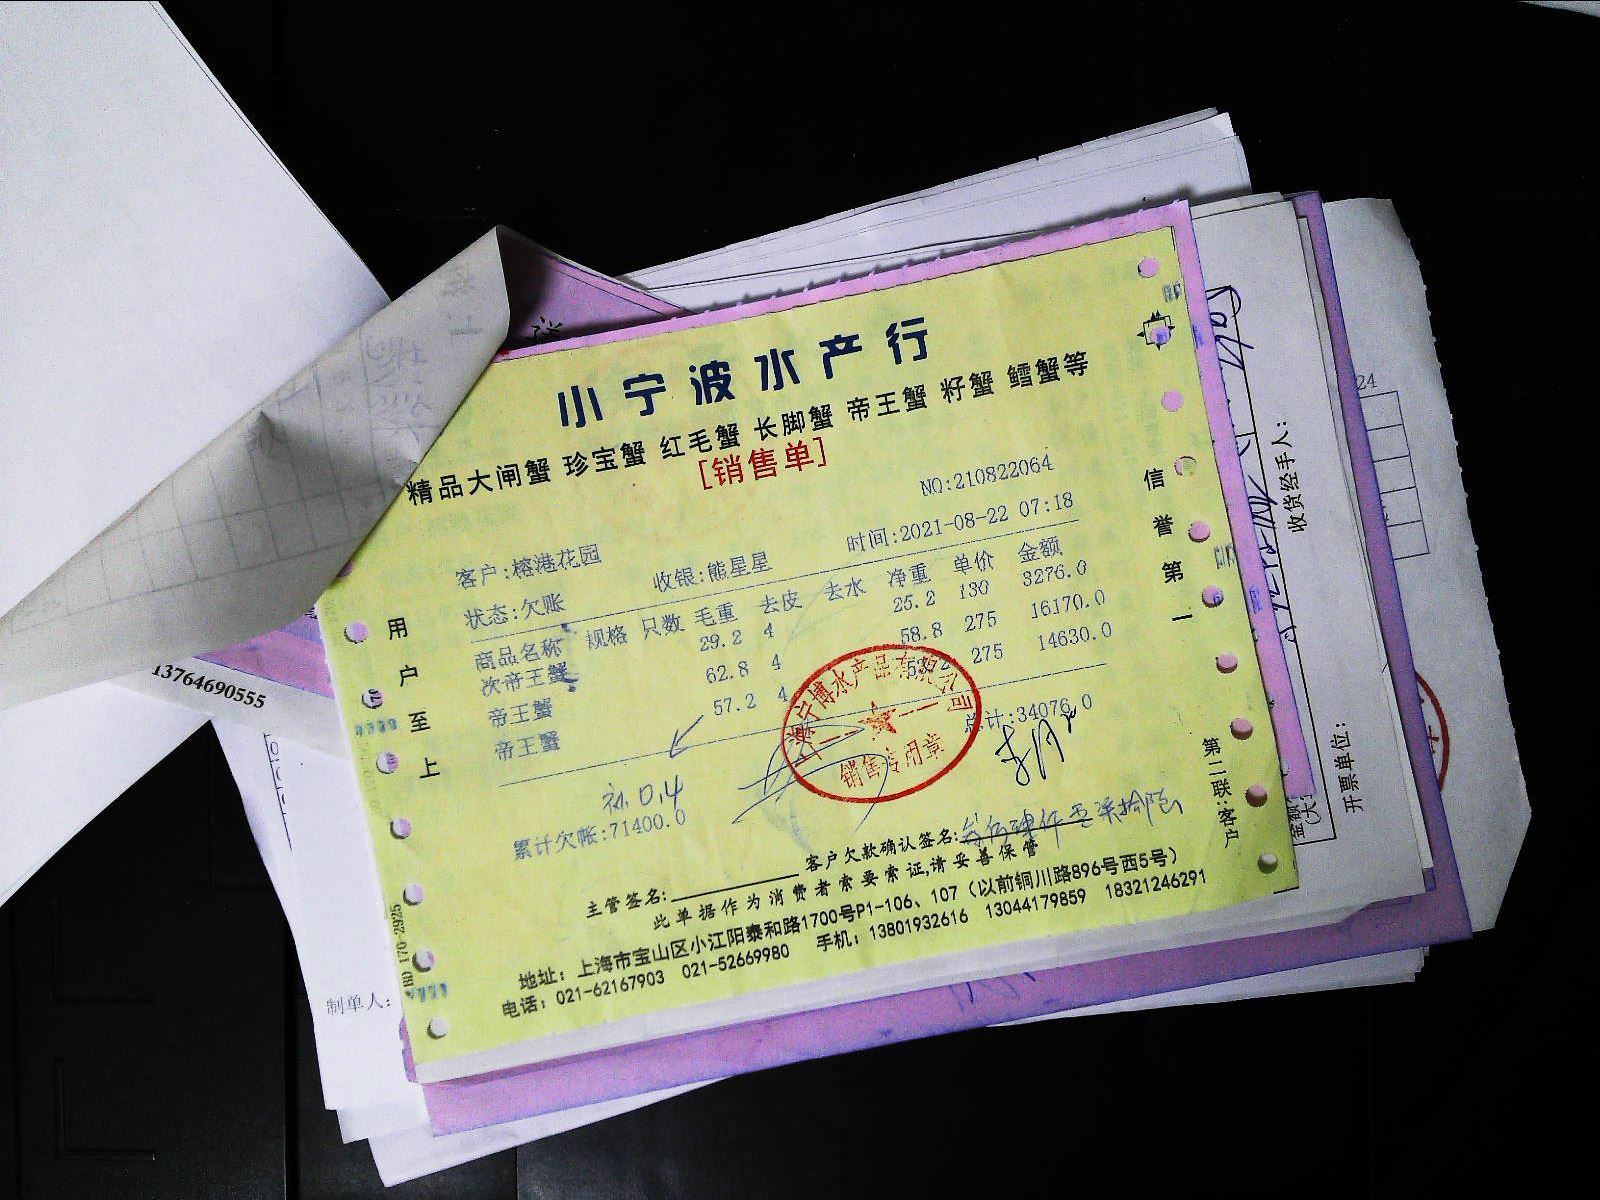 小宁波水产行
精品大闸蟹 珍宝蟹 红毛蟹 长脚蟹 帝王蟹 籽蟹 鳕蟹等
[销售单]
NO:210822064
客户:榕港花园 收银:熊星星 时间:2021-08-22 07:18
状态:欠账
商品名称 规格 只数 毛重 去皮 去水 净重 单价 金额
次帝王蟹 29.2 4 25.2 130 3276.0
帝王蟹 62.8 4 58.8 275 16170.0
帝王蟹 57.2 4 275 14630.0
总计:34076.0
补0.4
累计欠帐:71400.0
主管签名: 客户欠款确认签名:
此单据作为消费者索要索证,请妥善保管
地址: 上海市宝山区小江阳泰和路1700号P1-106、107 (以前铜川路896号西5号)
电话: 021-62167903 021-52669980 手机: 13801932616 13044179859 18321246291
用户至上
信誉第一
第二联:客户
水产品有限公司
销售专用章
13764690555
制单人:
收货经手人:
开票单位:
24